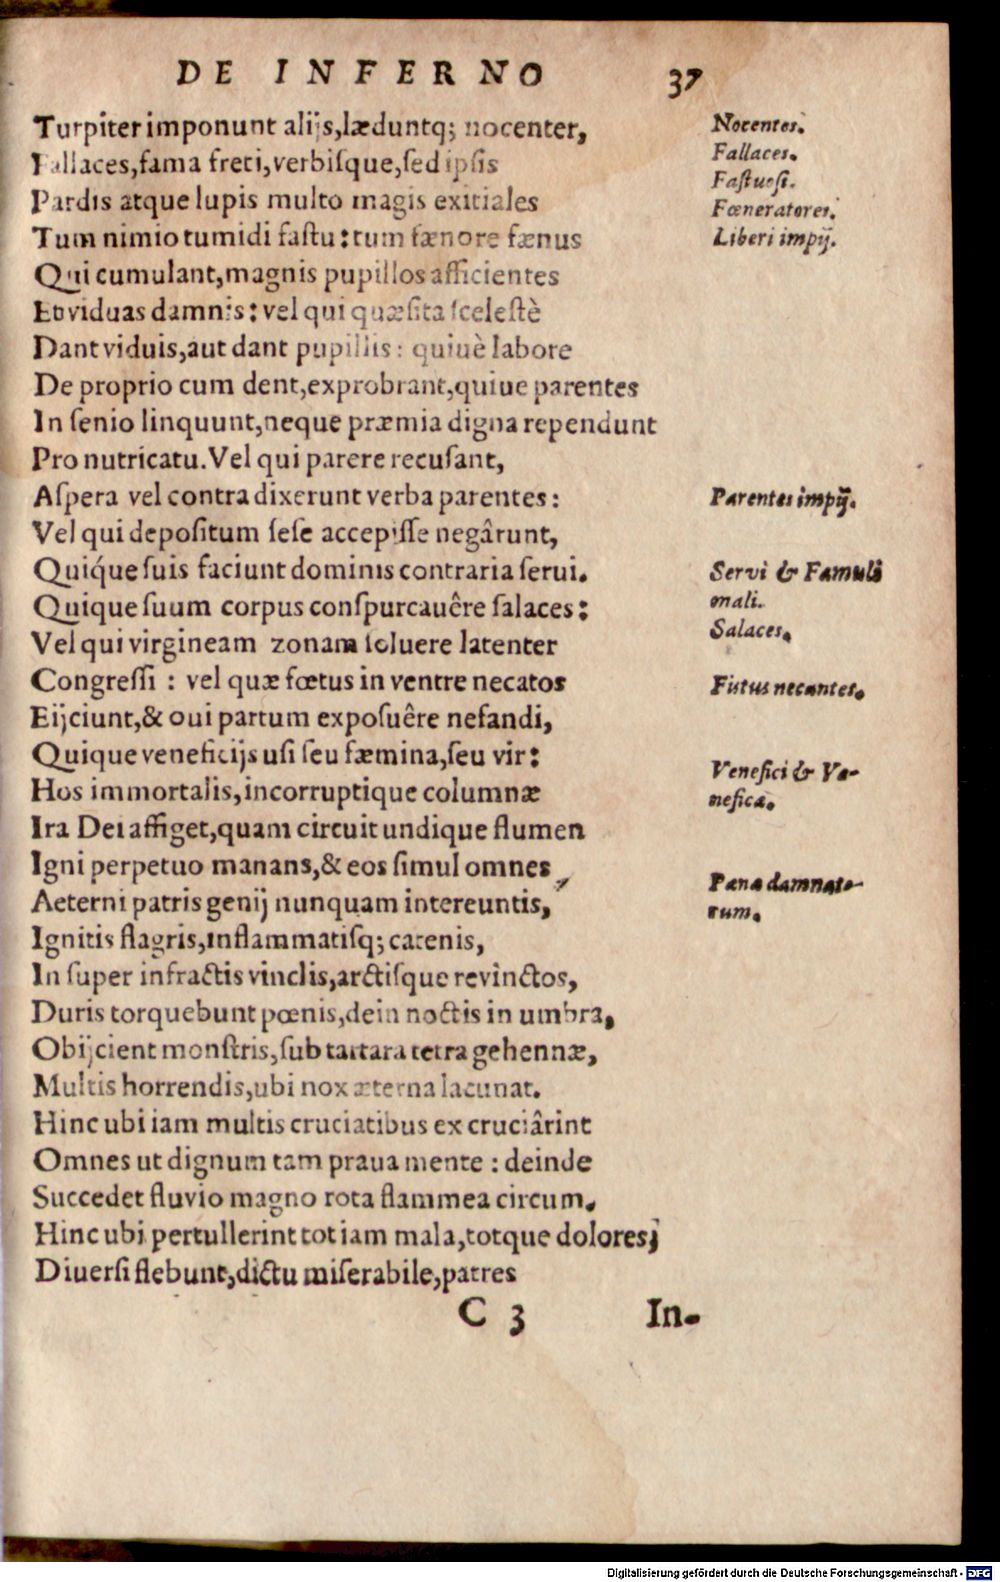 DE INFERNO 37
Turpiter imponunt alijs, læduntq; nocenter,
Fallaces, fama freti, verbisque, sed ipsis
Pardis atque lupis multo magis exitiales
Tum nimio tumidi fastu: tum fænore fænus
Qui cumulant, magnis pupillos afficientes
Et viduas damnis: vel qui quæsita scelestè
Dant viduis, aut dant pupillis: quiuè labore
De proprio cum dent, exprobrant, quiue parentes
In senio linquunt, neque præmia digna rependunt
Pro nutricatu. Vel qui parere recusant,
Aspera vel contra dixerunt verba parentes:
Vel qui depositum sese accepisse negârunt,
Quiq́ue suis faciunt dominis contraria serui.
Quique suum corpus conspurcauêre salaces:
Vel qui virgineam zonam soluere latenter
Congressi: vel quæ fœtus in ventre necatos
Eijciunt, & qui partum exposuêre nefandi,
Quique veneficijs usi seu fæmina, seu vir:
Hos immortalis, incorruptique columnæ
Ira Dei affiget, quam circuit undique flumen
Igni perpetuo manans, & eos simul omnes
Aeterni patris genij nunquam intereuntis,
Ignitis flagris, inflammatisq; catenis,
In super infractis vinclis, arctisque revinctos,
Duris torquebunt pœnis, dein noctis in umbra,
Obijcient monstris, sub tartara tetra gehennæ,
Multis horrendis, ubi nox æterna lacunat.
Hinc ubi iam multis cruciatibus ex cruciârint
Omnes ut dignum tam praua mente: deinde
Succedet fluvio magno rota flammea circum.
Hinc ubi pertullerint tot iam mala, totque dolores;
Diuersi flebunt, dictu miserabile, patres
C 3 In-
Nocentes.
Fallaces.
Fastuosi.
Fœneratores.
Liberi impij.
Parentes impij.
Servi & Famuli
mali.
Salaces.
Fœtus necantes.
Venefici & Ve-
neficæ.
Pœna damnato-
rum.
Digitalisierung gefördert durch die Deutsche Forschungsgemeinschaft - DFG